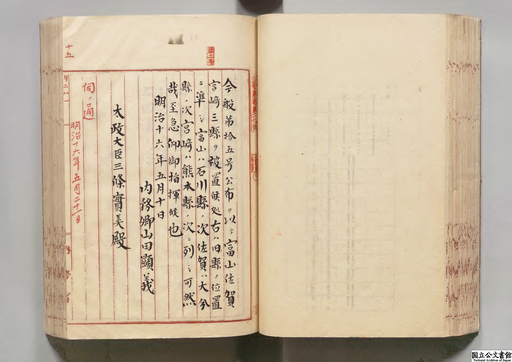 今般第拾五号公布ヲ以テ富山佐賀
宮崎三縣ヲ被置候処右ハ旧縣ノ位置
ニ準シ富山ハ石川縣ノ次佐賀ハ大分
縣ノ次宮崎ハ熊本縣ノ次ニ列シ可然
哉至急仰御指揮候也
明治十六年五月十日
内務卿山田顕義
太政大臣三條實美殿
伺ノ通
明治十六年五月二十二日
十五
国立公文書館
National Archives of Japan